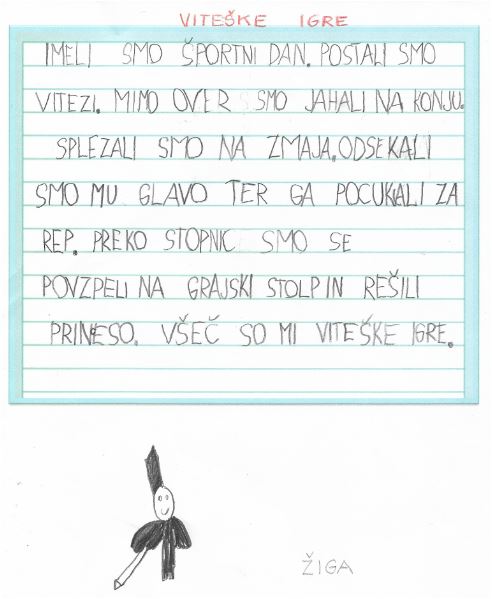 VITEŠKE IGRE
IMELI SMO ŠPORTNI DAN. POSTALI SMO
VITEZI. MIMO OVER SMO JAHALI NA KONJU.
SPLEZALI SMO NA ZMAJA. ODSEKALI
SMO MU GLAVO TER GA POCUKALI ZA
REP. PREKO STOPNIC SMO SE
POVZPELI NA GRAJSKI STOLP IN REŠILI
PRINESO. VŠEČ SO MI VITEŠKE IGRE.
ŽIGA